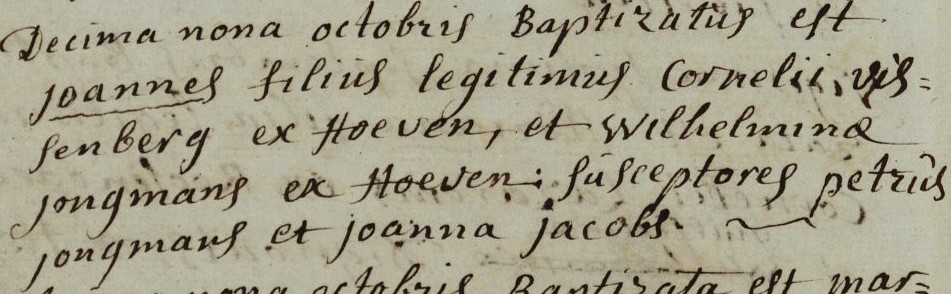 Decima nona octobris Baptizatus est
joannes filius legitimus Cornelii, vis=
senberg ex Hoeven, et Wilhelminæ
jongmans ex Hoeven: susceptores petrus
jongmans et joanna jacobs.
nona octobris Baptizata est mar=